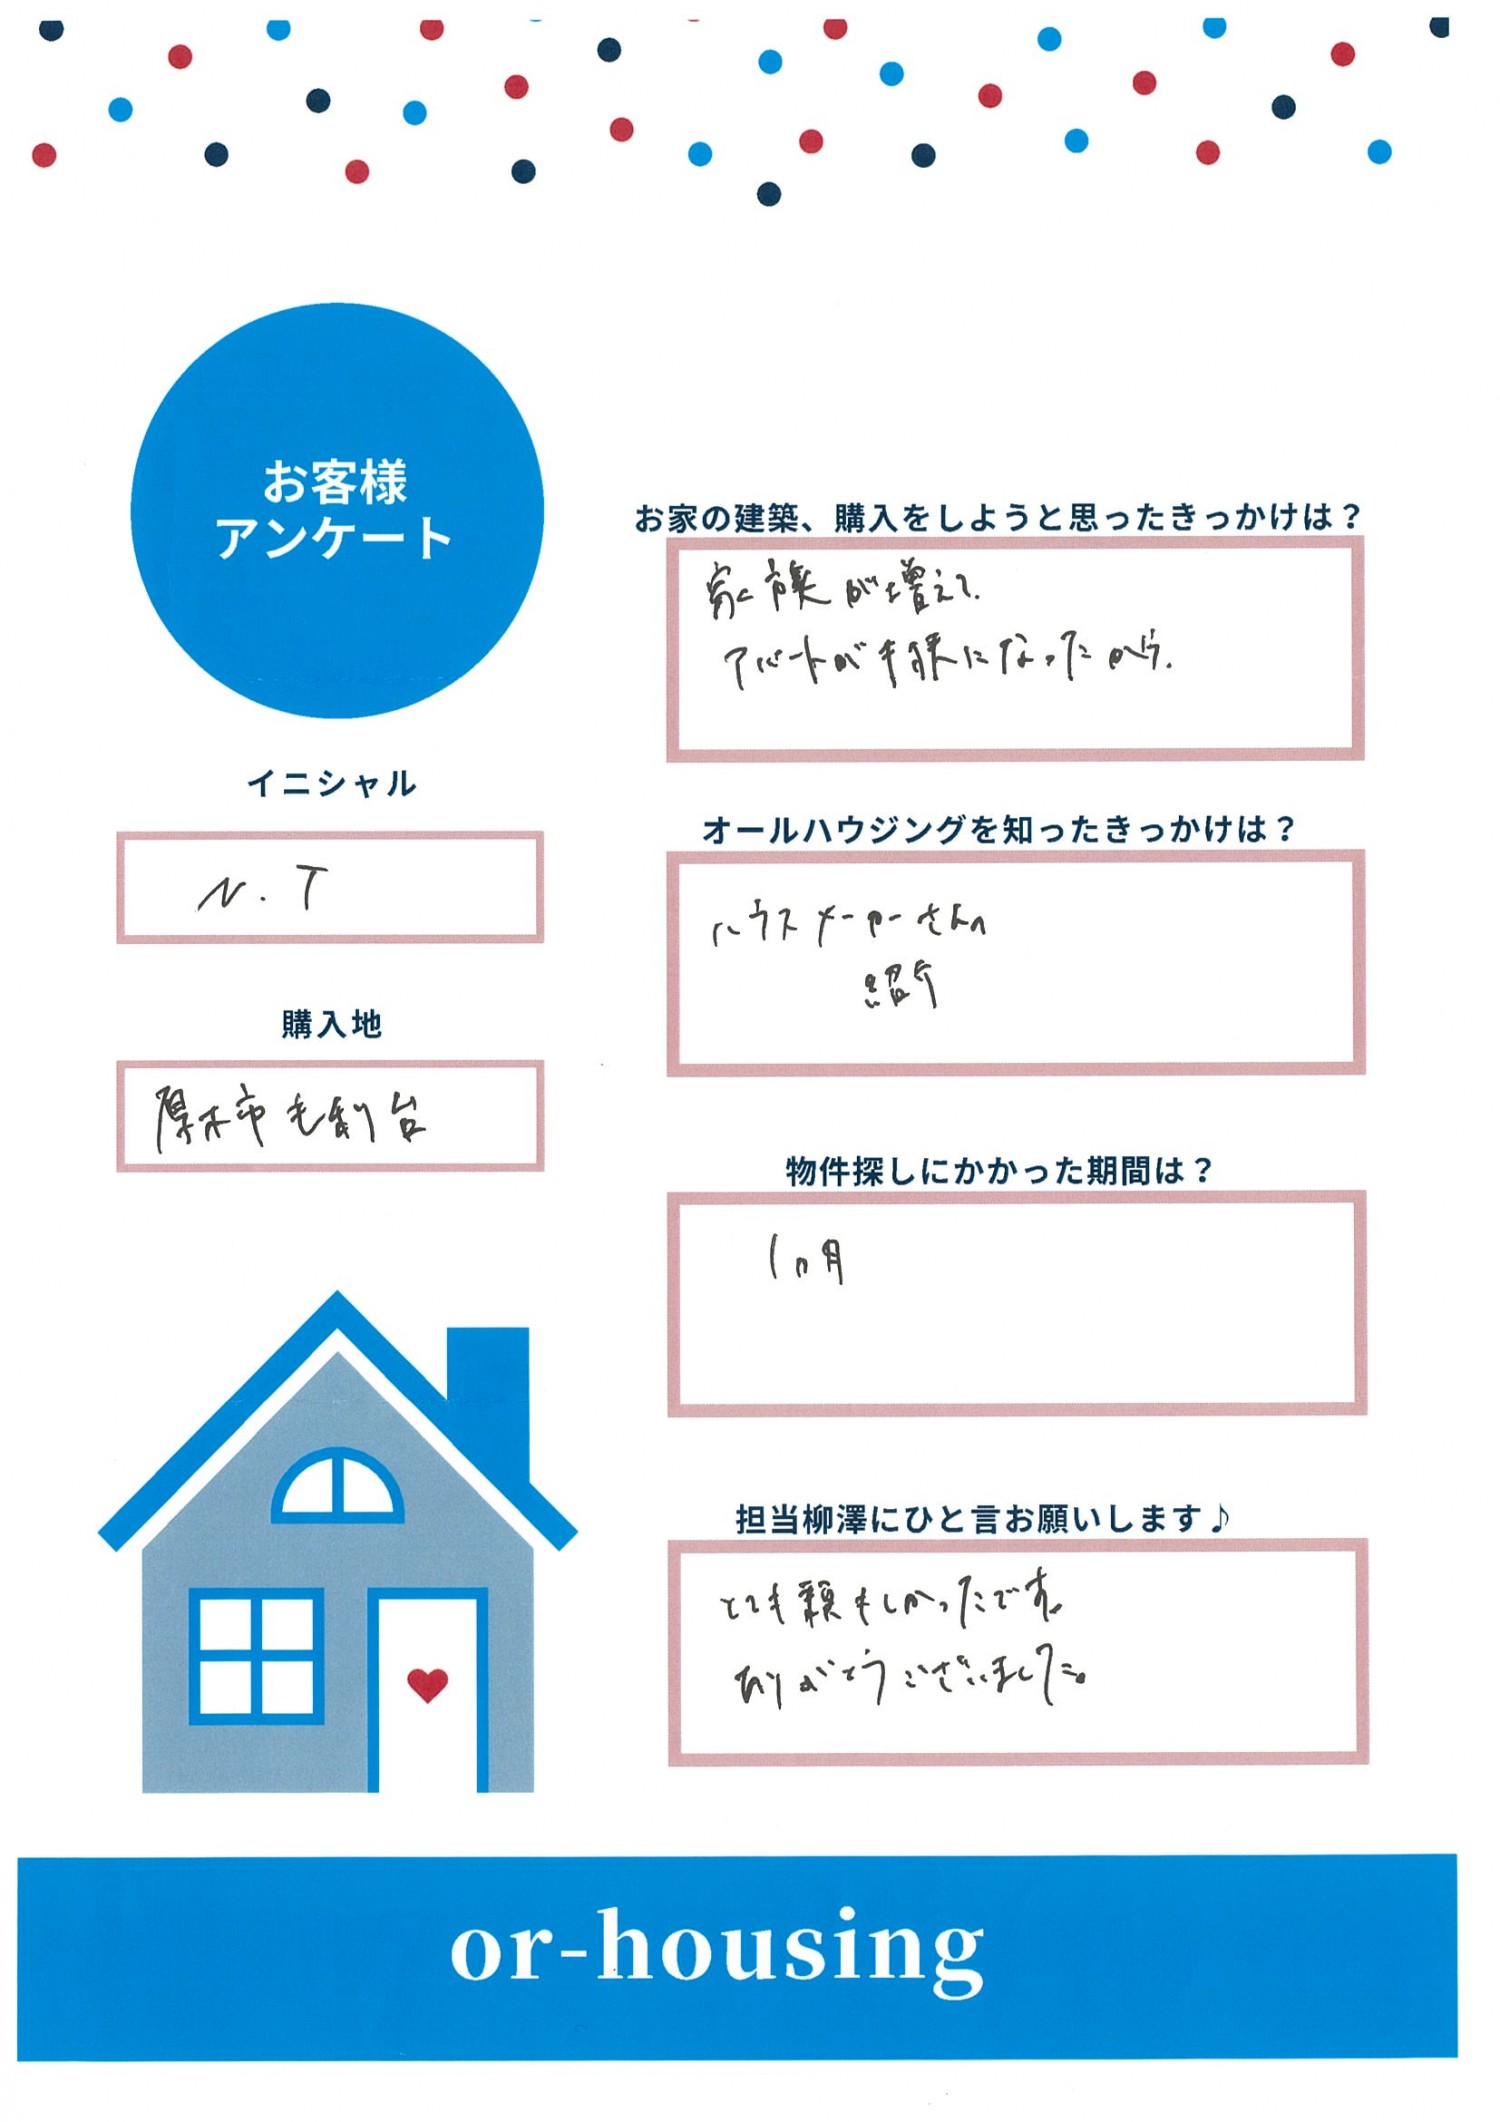 お客様
アンケート
イニシャル
N.T
購入地
厚木市毛利台
お家の建築、購入をしようと思ったきっかけは？
家族が増えて
アパートが手狭になったから.
オールハウジングを知ったきっかけは？
ハウスメーカーさんの
紹介
物件探しにかかった期間は？
1ヵ月
担当柳澤にひと言お願いします♪
とても頼もしかったです。
ありがとうございました。
or-housing